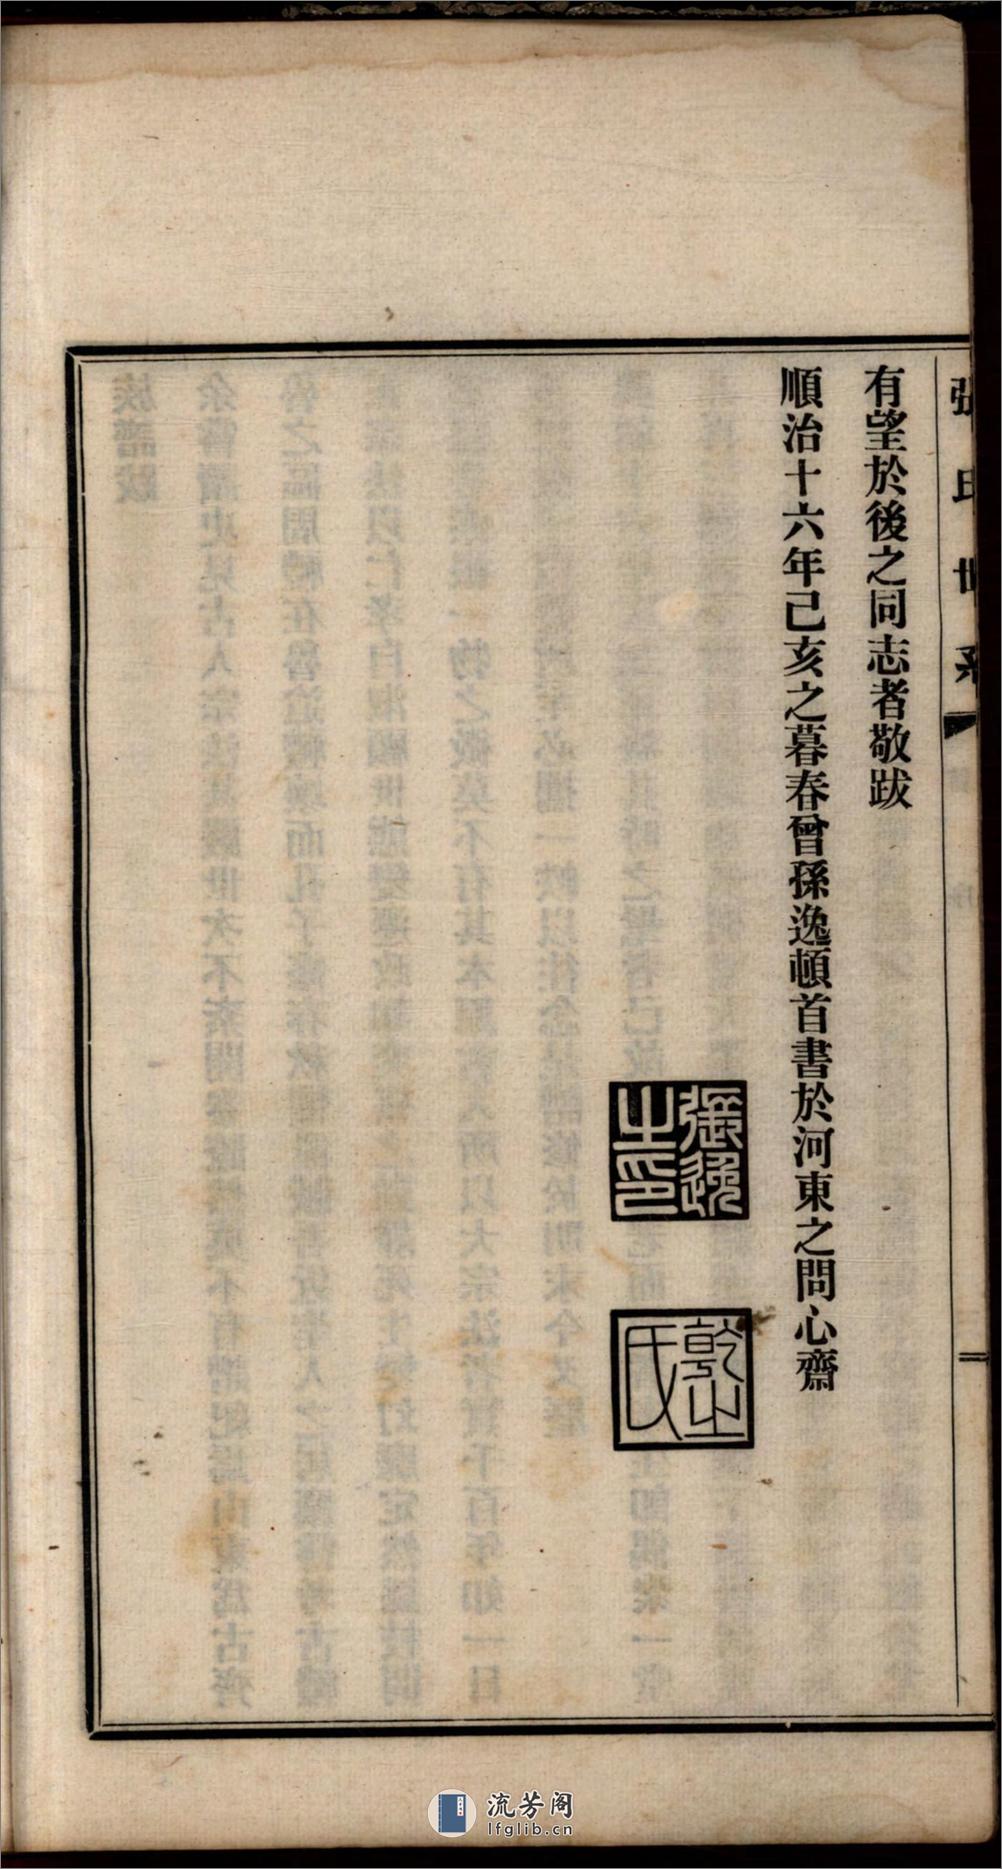 張氏世系
有望於後之同志者敬跋
順治十六年己亥之暮春曾孫逸頓首書於河東之問心齋
張逸之印
乾山氏
二
流芳阁
lfglib.cn